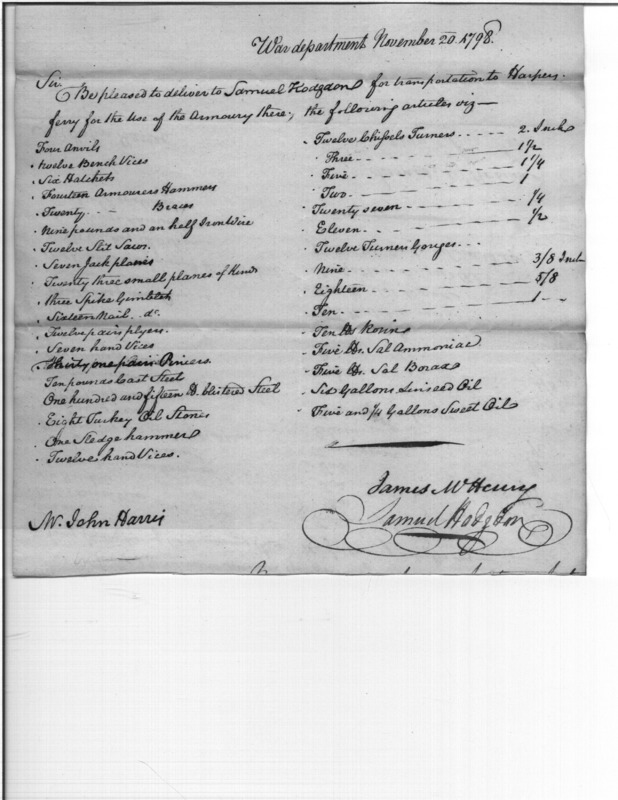 War department November 20. 1798.
Sir,
Be pleased to deliver to Samuel Hodgdon for transportation to Harpers.
ferry for the Use of the Armoury there; the following articles viz—
Four Anvils
twelve Bench Vices
Six Hatchets
Fourteen Armourers Hammers
Twenty — Braces
Nine pounds and an half Iron Wire
Twelve Slit Saws.
Seven Jack planes
Twenty three small planes of Kinds
three Spike Gimblets
Sixteen Nail. do.
Twelve pairs plyers.
Seven hand Vices
thirty one pairs Pincers.
Ten pounds Cast Steel
One hundred and fifteen lb. blistered Steel
Eight Turkey Oil Stones
One Sledge hammer
Twelve hand Vices.
Twelve Chissels Turners 2. Inch
Three 1 1/2
Five 1 1/4
Two 1
Twenty seven 1/4
Eleven 1/2
Twelve Turners Gorges
Nine 3/8 Inch
Eighteen 5/8
Ten 1
Ten lbs Rosin
Five lbs. Sal Ammoniac
Five lbs. Sal Borax
Six Gallons Linseed Oil
Five and Gallons Sweet Oil
James McHenry
Samuel Hodgdon
Mr. John Harris